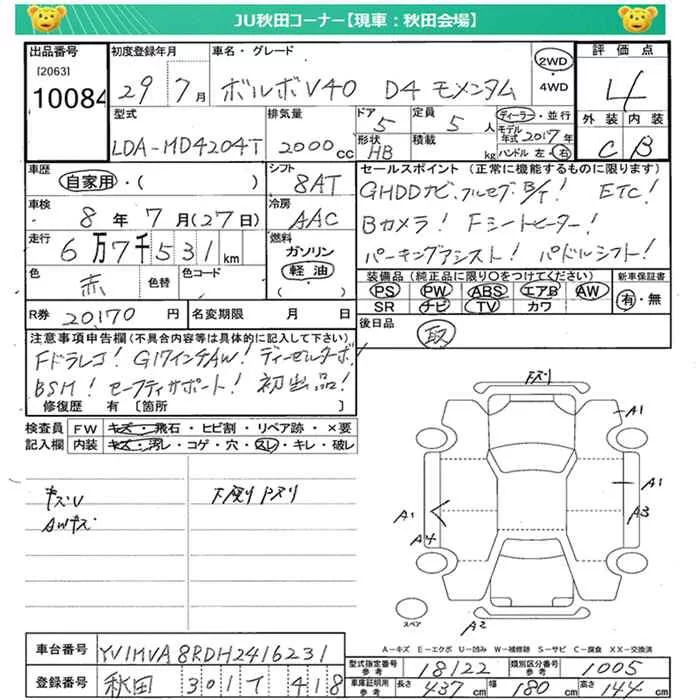 JU秋田コーナー【現車：秋田会場】
出品番号
[2063]
10084
初度登録年月
29年7月
車名・グレード
ボルボV40 D4 モメンタム
2WD
・4WD
評価点
4
外装 内装
C B
型式
LDA-MD4204T
排気量
2000cc
ドア
5
形状
HB
定員
5人
積載
kg
ディーラー・並行
モデル年式 2017年
ハンドル 左・右
車歴
自家用・( )
シフト
8AT
セールスポイント (正常に機能するものに限ります)
GHDDナビ、フルセグ、B/T! ETC!
Bカメラ! Fシートヒーター!
パーキングアシスト! パドルシフト!
車検
8年7月(27日)
冷房
AAC
走行
6万7千531km
燃料
ガソリン
軽油
色
赤
色替
色コード
装備品 (純正品に限り○をつけてください)
PS PW ABS エアB AW
SR ナビ TV カワ
新車保証書
有・無
R券 20170円
名変期限 月 日
後日品
取
注意事項申告欄(不具合内容等は具体的に記入して下さい)
Fドラレコ! G17インチAW! ディーゼルターボ!
BSM! セーフティサポート! 初出品!
修復歴 有 [箇所 ]
検査員記入欄
FW キズ・飛石・ヒビ割・リペア跡・×要
内装 キズ・汚レ・コゲ・穴・スレ・キレ・破レ
キズU
AWキズ
下廻り Pズリ
下ズリ
A1
A1
A3
A1
A4
A2
スペア
A-キズ E-エクボ U-凹み W-補修跡 S-サビ C-腐食 XX-交換済
車台番号
YV1MVA8RDH2416231
登録番号
秋田 301 て 418
型式指定番号 参考 18122
類別区分番号 参考 1005
車庫証明用 参考 長さ 437cm 幅 180cm 高さ 144cm